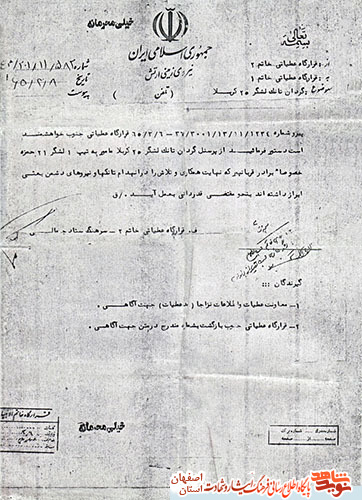 خیلی محرمانه
بسمه تعالی
جمهوری اسلامی ایران
نیروی زمینی ارتش
شماره
تاریخ
پیوست
( تلفن )
از : قرارگاه عملیاتی خاتم ۲
به : قرارگاه عملیاتی خاتم ۱
موضوع : گردان تانک لشگر ۲۵ کربلا
پیرو شماره قرارگاه عملیاتی جنوب خواهشمند
است دستور فرمائید از پرسنل گردان تانک لشگر ۲۵ کربلا مامور به تیپ ۱ لشگر ۲۱ حمزه
خصوصا" برادر قربانپور که نهایت همکاری و تلاش را در انهدام تانکها و نیروهای دشمن بعثی
ابراز داشته اند بنحو مقتضی قدردانی بعمل آید .
ف . قرارگاه عملیاتی خاتم ۲ - سرهنگ ستاد جمالی
گیرندگان :::
۱ - معاونت عملیات و اطلاعات نزاجا ( عملیات ) جهت آگاهی .
۲ - قرارگاه عملیاتی جنوب بازگشت بشماره مندرج در متن جهت آگاهی .
خیلی محرمانه
نوید شاهد
پایگاه اطلاع رسانی فرهنگ ایثار و شهادت
استان اصفهان